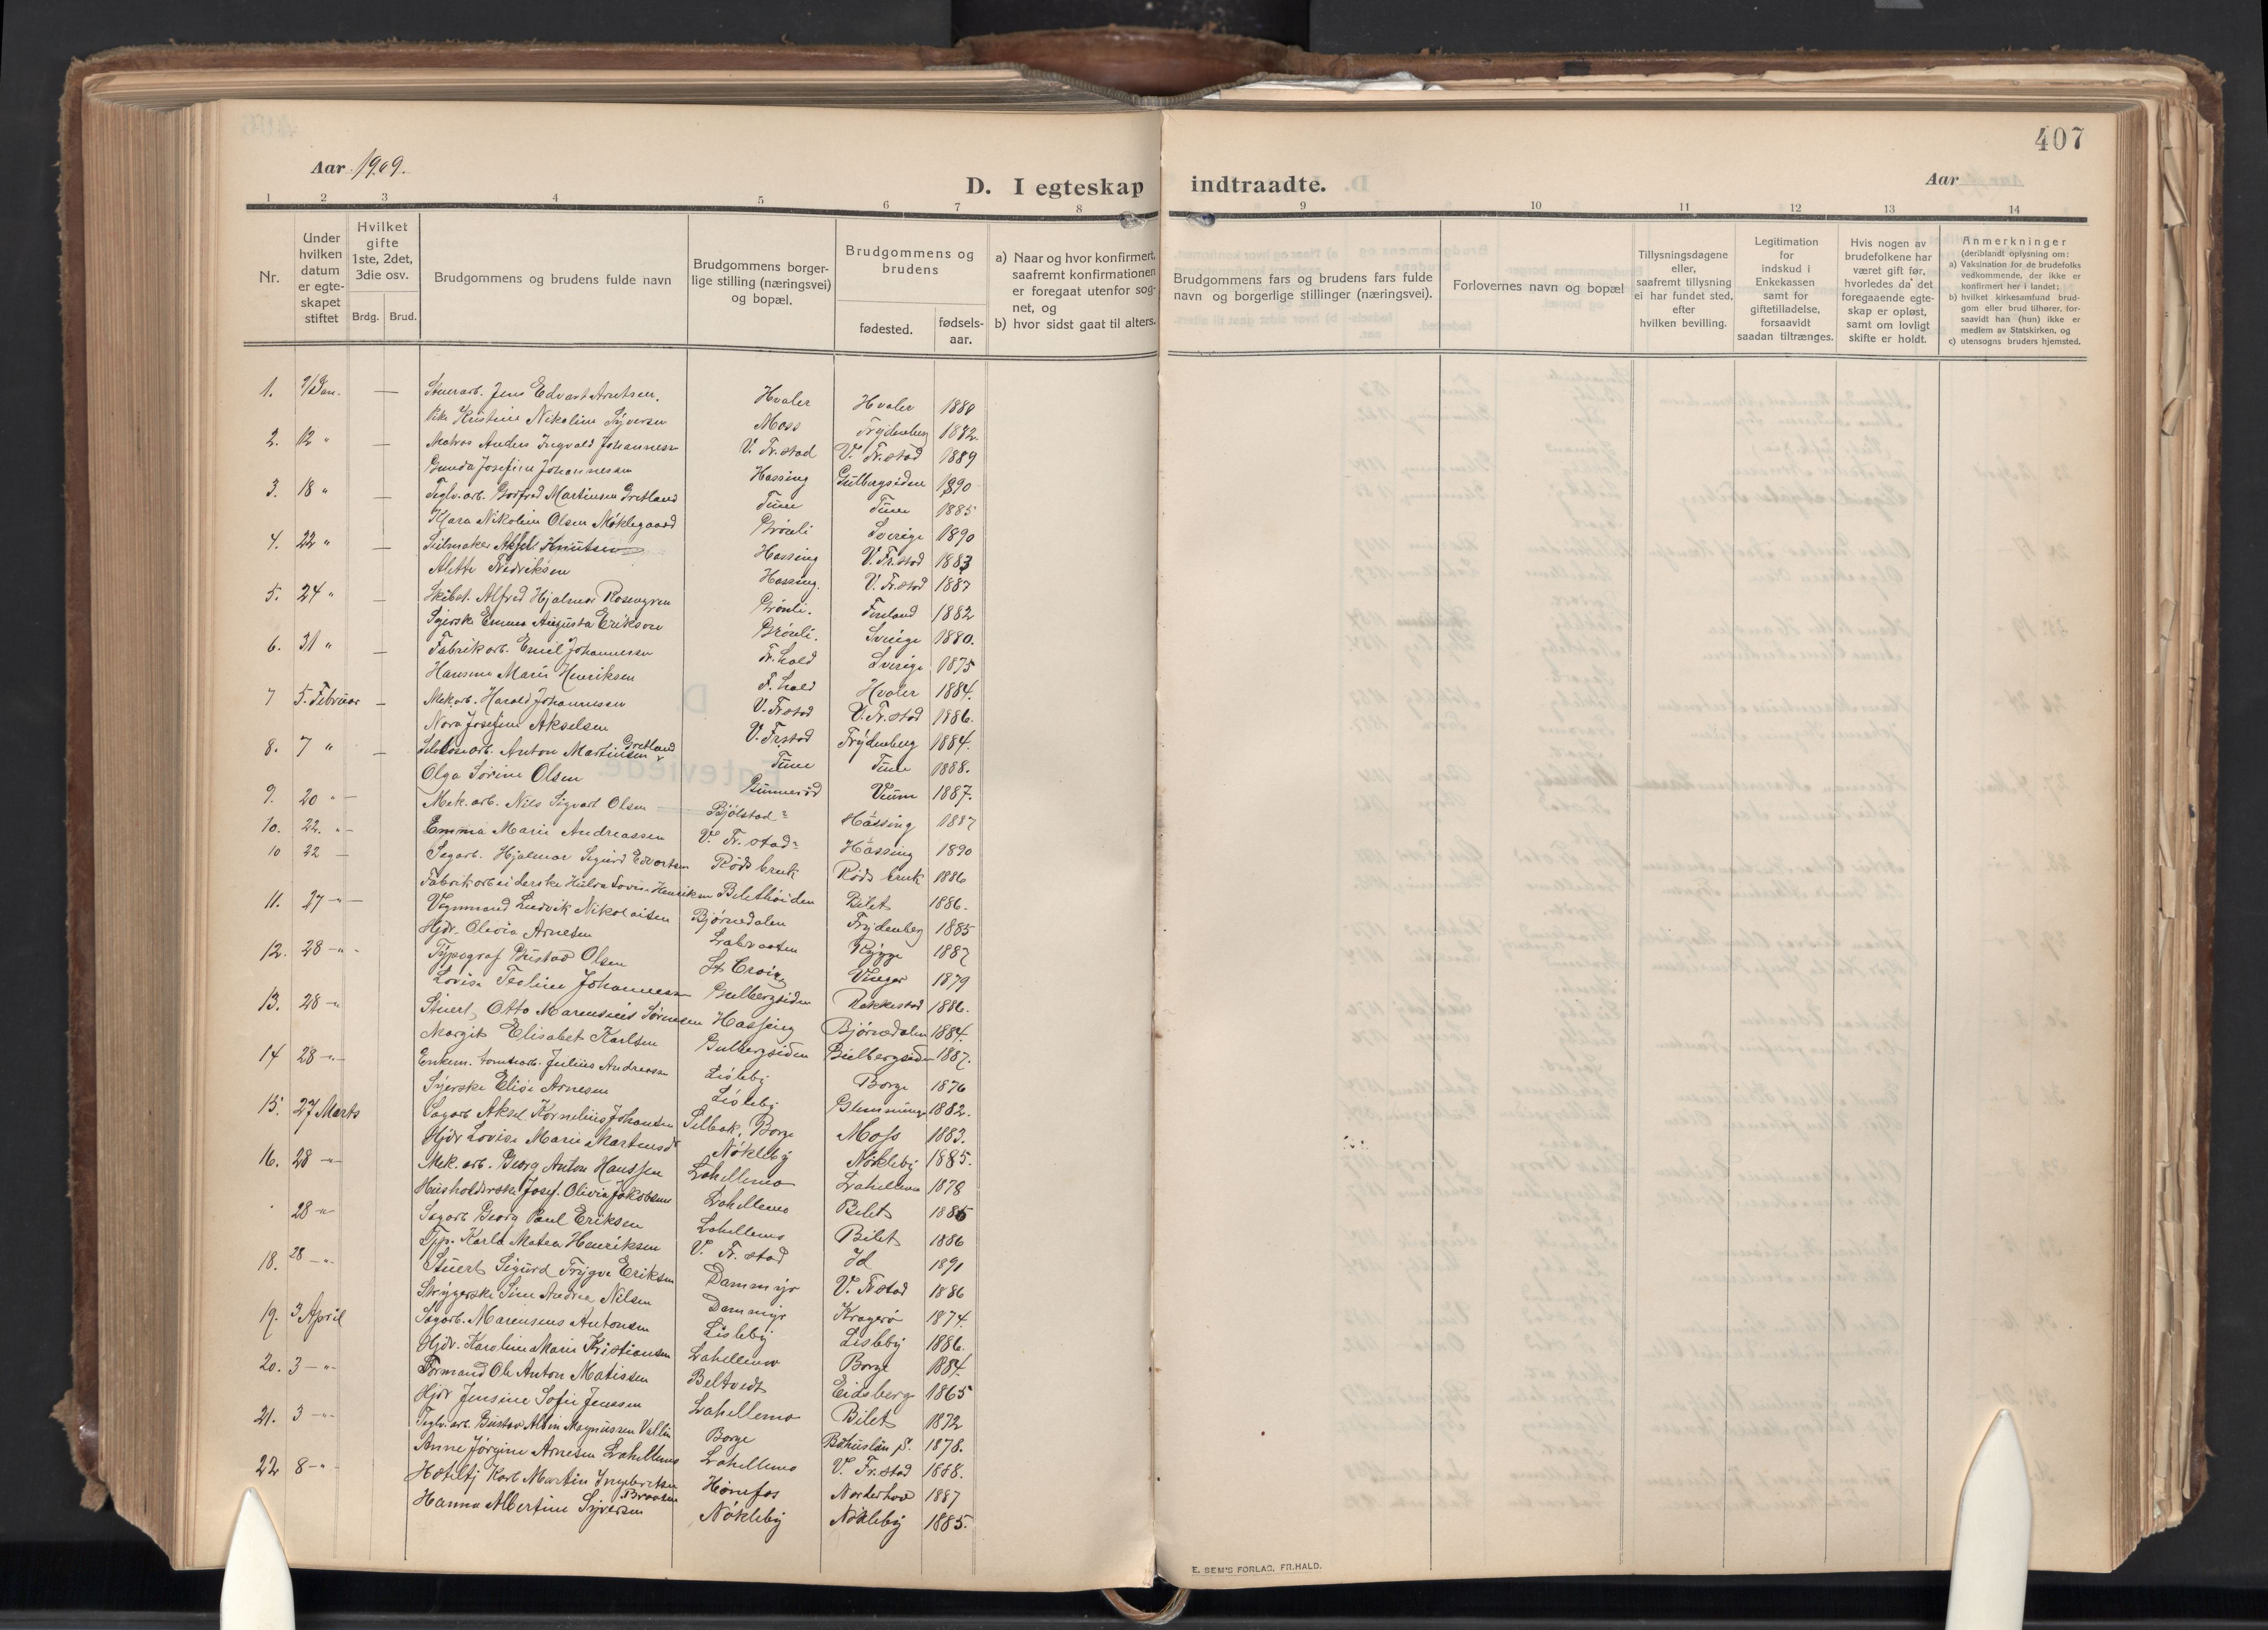 407
Aar 1909.
D. I egteskap indtraadte.
Aar
1 2 3 4 5 6 7 8 9 10 11 12 13 14
Nr.
Under hvilken datum er egteskapet stiftet
Hvilket gifte 1ste, 2det, 3die osv.
Brdg. Brud.
Brudgommens og brudens fulde navn
Brudgommens borgerlige stilling (næringsvei) og bopæl.
Brudgommens og brudens
fødested.
fødselsaar.
a) Naar og hvor konfirmert, saafremt konfirmationen er foregaat utenfor sognet, og
b) hvor sidst gaat til alters.
Brudgommens fars og brudens fars fulde navn og borgerlige stillinger (næringsvei).
Forlovernes navn og bopæl
Tillysningsdagene eller, saafremt tillysning ei har fundet sted, efter hvilken bevilling.
Legitimation for indskud i Enkekassen samt for giftetilladelse, forsaavidt saadan tiltrænges.
Hvis nogen av brudefolkene har været gift før, hvorledes da det foregaaende egteskap er opløst, samt om lovligt skifte er holdt.
Anmerkninger (deriblandt oplysning om:
a) Vaksination for de brudefolks vedkommende, der ikke er konfirmert her i landet;
b) hvilket kirkesamfund brudgom eller brud tilhører, forsaavidt han (hun) ikke er medlem av Statskirken, og
c) utensogns bruders hjemsted.
1. 9/Jan. — Stenarb. Jens Edvart Arntsen. Hvaler Hvaler 1880
Kristine Nikoline Syversen Moss Frydenberg 1882.
2. 12 " — Matros Anders Ingvald Johannesen V. Fr.stad V. Fr.stad 1889
Gunda Josefine Johannesen Hassing Gulbergsiden 1890
3. 18 " — Teglv.arb. Godfred Martinsen Gretland Tune Tune 1885
Klara Nikoline Olsen Møklegaard Grönli Sverige 1890
4. 22 " — Seilmaker Aksel Knutsen Hassing V. Fr.stad 1883
Alette Fredriksen Hassing V. Fr.stad 1887
5. 24 " — Skibst. Alfred Hjalmar Rosengren Grönli. Finland 1882
Syerske Emma Augusta Erikson Grönli. Sverige 1880.
6. 31 " — Fabrikarb. Emil Johannessen Fr.hald Sverige 1875
Hansine Marie Henriksen F.hald Hvaler 1884.
7 5. Februar — Mek.arb. Harald Johannessen V. Frstad V. Fr.stad 1886.
Nora Josefine Akselsen V. Frstad Frydenberg 1884.
8. 7 " — Anton Martinsen Gretland Tune Tune 1888.
Olga Sørine Olsen Gunnerød Veum 1887.
9. 20 " — Mek. arb. Nils Sigvart Olsen Bjölstad Hässing 1887
10. 22. " — Emma Marie Andreassen V. Fr. stad Hässing 1890
10 22 — Sagarb. Hjalmar Sigurd Edvartsen Röds bruk Röds bruk 1886
Fabrikarbeiderske Hulda Lovise Henriksen Bilethöiden Bilet 1886.
11. 27 — " — Vognmand Ludvik Nikolaisen Bjørnedalen Frydenberg 1885
Hjdv. Olivia Arnesen Labraaten Rygge 1887
12. 28 — " — Typograf Gustav Olsen St Croix Vinger 1879
Lovise Teoline Johannessen Gulbergsiden Rakkestad 1886.
13. 28 — " Stuert, Otto Marensius Sörensen Hassing Bjørnedalen 1884.
Margit Elisabet Karlsen Gulbergsiden Gulbergsiden 1887.
14 28 — " — Enkem. tomtearb. Julius Andreassen Lisleby Borge 1876
Syerske Elise Arnesen Lisleby Glemminge 1882.
15. 27 Marts Sagarb Aksel Kornelius Johansen Selbak, Borge Moss 1883.
Hjdv Lovise Marie Martinsdt Nökleby Nökleby 1885.
16. 28 — " — Mek. arb. Georg Anton Hanssen Lahellemo Lahellemo 1878
Husholderske Josef. Olivia Jakobsen Lahellemo Bilet 1885
28 — " Sagarb Georg Paul Eriksen Lahellemo Bilet 1886
Karla Matea Henriksen V. Fr. stad Id 1891
18. 28 — " — Stuert Sigurd Trygve Eriksen Dammyr V. Frstad 1886
Strygerske Sine Andrea Nilsen Dammyr Kragerø 1874.
19. 3 April Sagarb. Marensius Antonsen Lisleby Lisleby 1886.
Hjdv. Karoline Marie Kristiansen Lahellemo Borge 1884.
20. 3 — " — Formand Ole Anton Matissen Beltvedt Eidsberg 1865
Hjdv Jensine Sofie Jenssen Lahellemo Bilet 1872
21. 3 — " — Teglv.arb. Gustav Albin Magnussen Vallin Borge Bohuslän S. 1878.
Anne Jörgine Arnesen Lahellemo Lahellemo V. Fr.stad 1888.
22 8 — " — Karl Martin Ingebretsen Braaten Hönefos Norderhov 1887
Hanna Albertine Syversen Nökleby Nökleby 1885.
E. SEM'S FORLAG, FR.HALD.